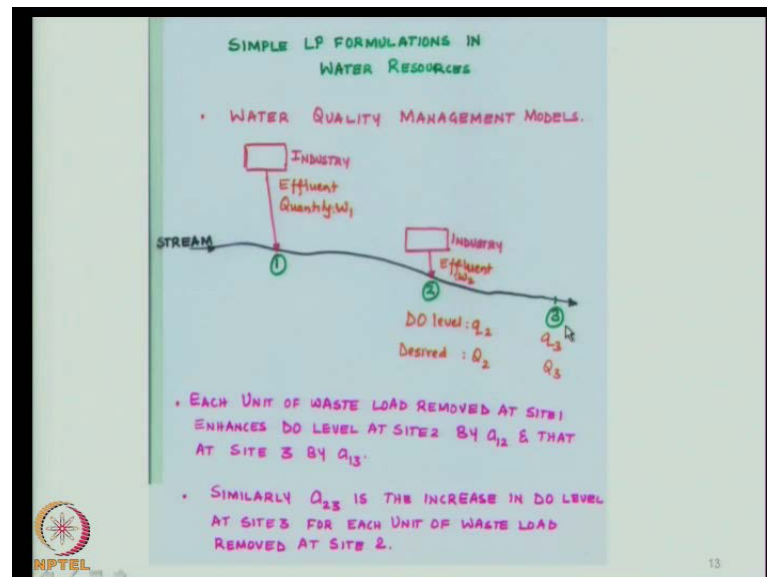 SIMPLE LP FORMULATIONS IN
WATER RESOURCES
• WATER QUALITY MANAGEMENT MODELS.
INDUSTRY
Effluent
Quantity: W₁
STREAM
①
INDUSTRY
Effluent
: W₂
②
③
DO level : q₂
q₃
Desired : Q₂
Q₃
• EACH UNIT OF WASTE LOAD REMOVED AT SITE 1
ENHANCES DO LEVEL AT SITE 2 BY a₁₂ & THAT
AT SITE 3 BY a₁₃.
• SIMILARLY a₂₃ IS THE INCREASE IN DO LEVEL
AT SITE 3 FOR EACH UNIT OF WASTE LOAD
REMOVED AT SITE 2.
NPTEL
13